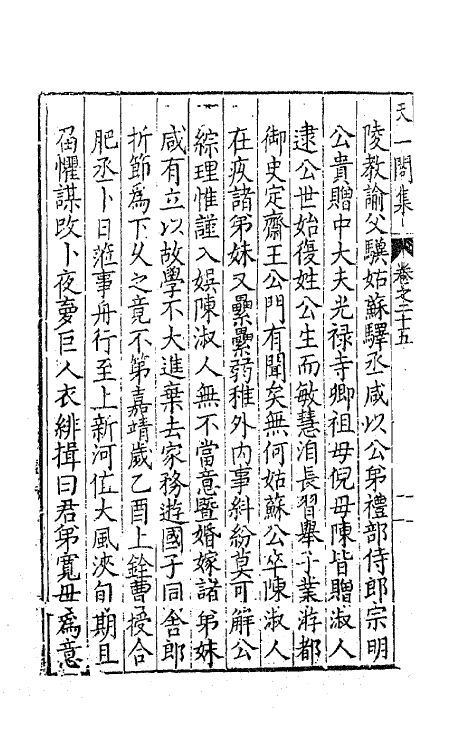 天一閣集
卷之二十五
陵教諭父驥姑蘇驛丞咸以公弟禮部侍郎宗明
公貴贈中大夫光禄寺卿祖母倪母陳皆贈淑人
逮公世始復姓公生而敏慧洎長習舉子業游都
御史定齋王公門有聞矣無何姑蘇公卒陳淑人
在疚諸弟妹又纍纍弱稚外内事糾紛莫可觧公
綜理惟謹入娱陳淑人無不當意曁婚嫁諸弟妹
咸有立以故學不大進棄去家務遊國子同舎郎
折節爲下久之竟不第嘉靖歲乙酉上銓曹授合
肥丞卜日涖事舟行至上新河值大風浹旬期且
届懼謀改卜夜夢巨人衣緋揖曰君弟寛毋爲意